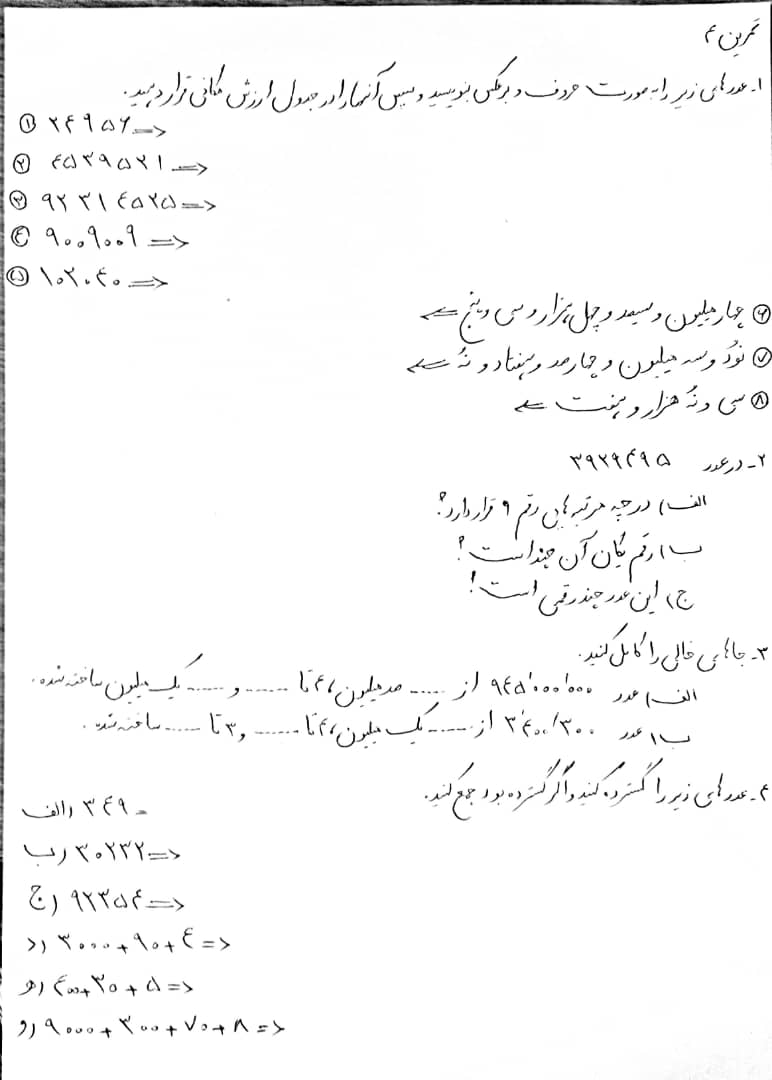 تمرین ۴
۱- عددهای زیر را به صورت حروف و برعکس بنویسید و سپس آنها را در جدول ارزش مکانی قرار دهید.
① ۲۴۹۵۶ =>
② ۴۵۲۹۵۲۱ =>
③ ۹۲۳۱۴۵۲۵ =>
④ ۹۰۰۹۰۰۹ =>
⑤ ۱۰۲۰۴۰ =>
⑥ چهار میلیون و سیصد و چهل هزار و سی و پنج <=
⑦ نود و سه میلیون و چهارصد و هفتاد و نُه <=
⑧ سی و نُه هزار و هفت <=
۲- در عدد ۳۹۲۹۴۹۵
الف) در چه مرتبه هایی رقم ۹ قرار دارد؟
ب) رقم یکان آن چند است؟
ج) این عدد چند رقمی است!
۳- جاهای خالی را کامل کنید.
الف) عدد ۹۴۵٬۰۰۰٬۰۰۰ از ...... صد میلیون، ۴ تا ...... و ...... یک میلیون ساخته شده.
ب) عدد ۳٬۴۰۰٬۳۰۰ از ...... یک میلیون، ۴ تا ...... و ۳ تا ...... ساخته شده.
۴- عددهای زیر را گسترده کنید و اگر گسترده بود جمع کنید.
الف) ۳۴۹ =
ب) ۳۰۲۳۲ =>
ج) ۹۲۳۵۴ =>
د) ۳۰۰۰ + ۹۰ + ۴ =>
ه) ۴۰۰ + ۳۰ + ۵ =>
و) ۹۰۰۰ + ۳۰۰ + ۷۰ + ۸ =>